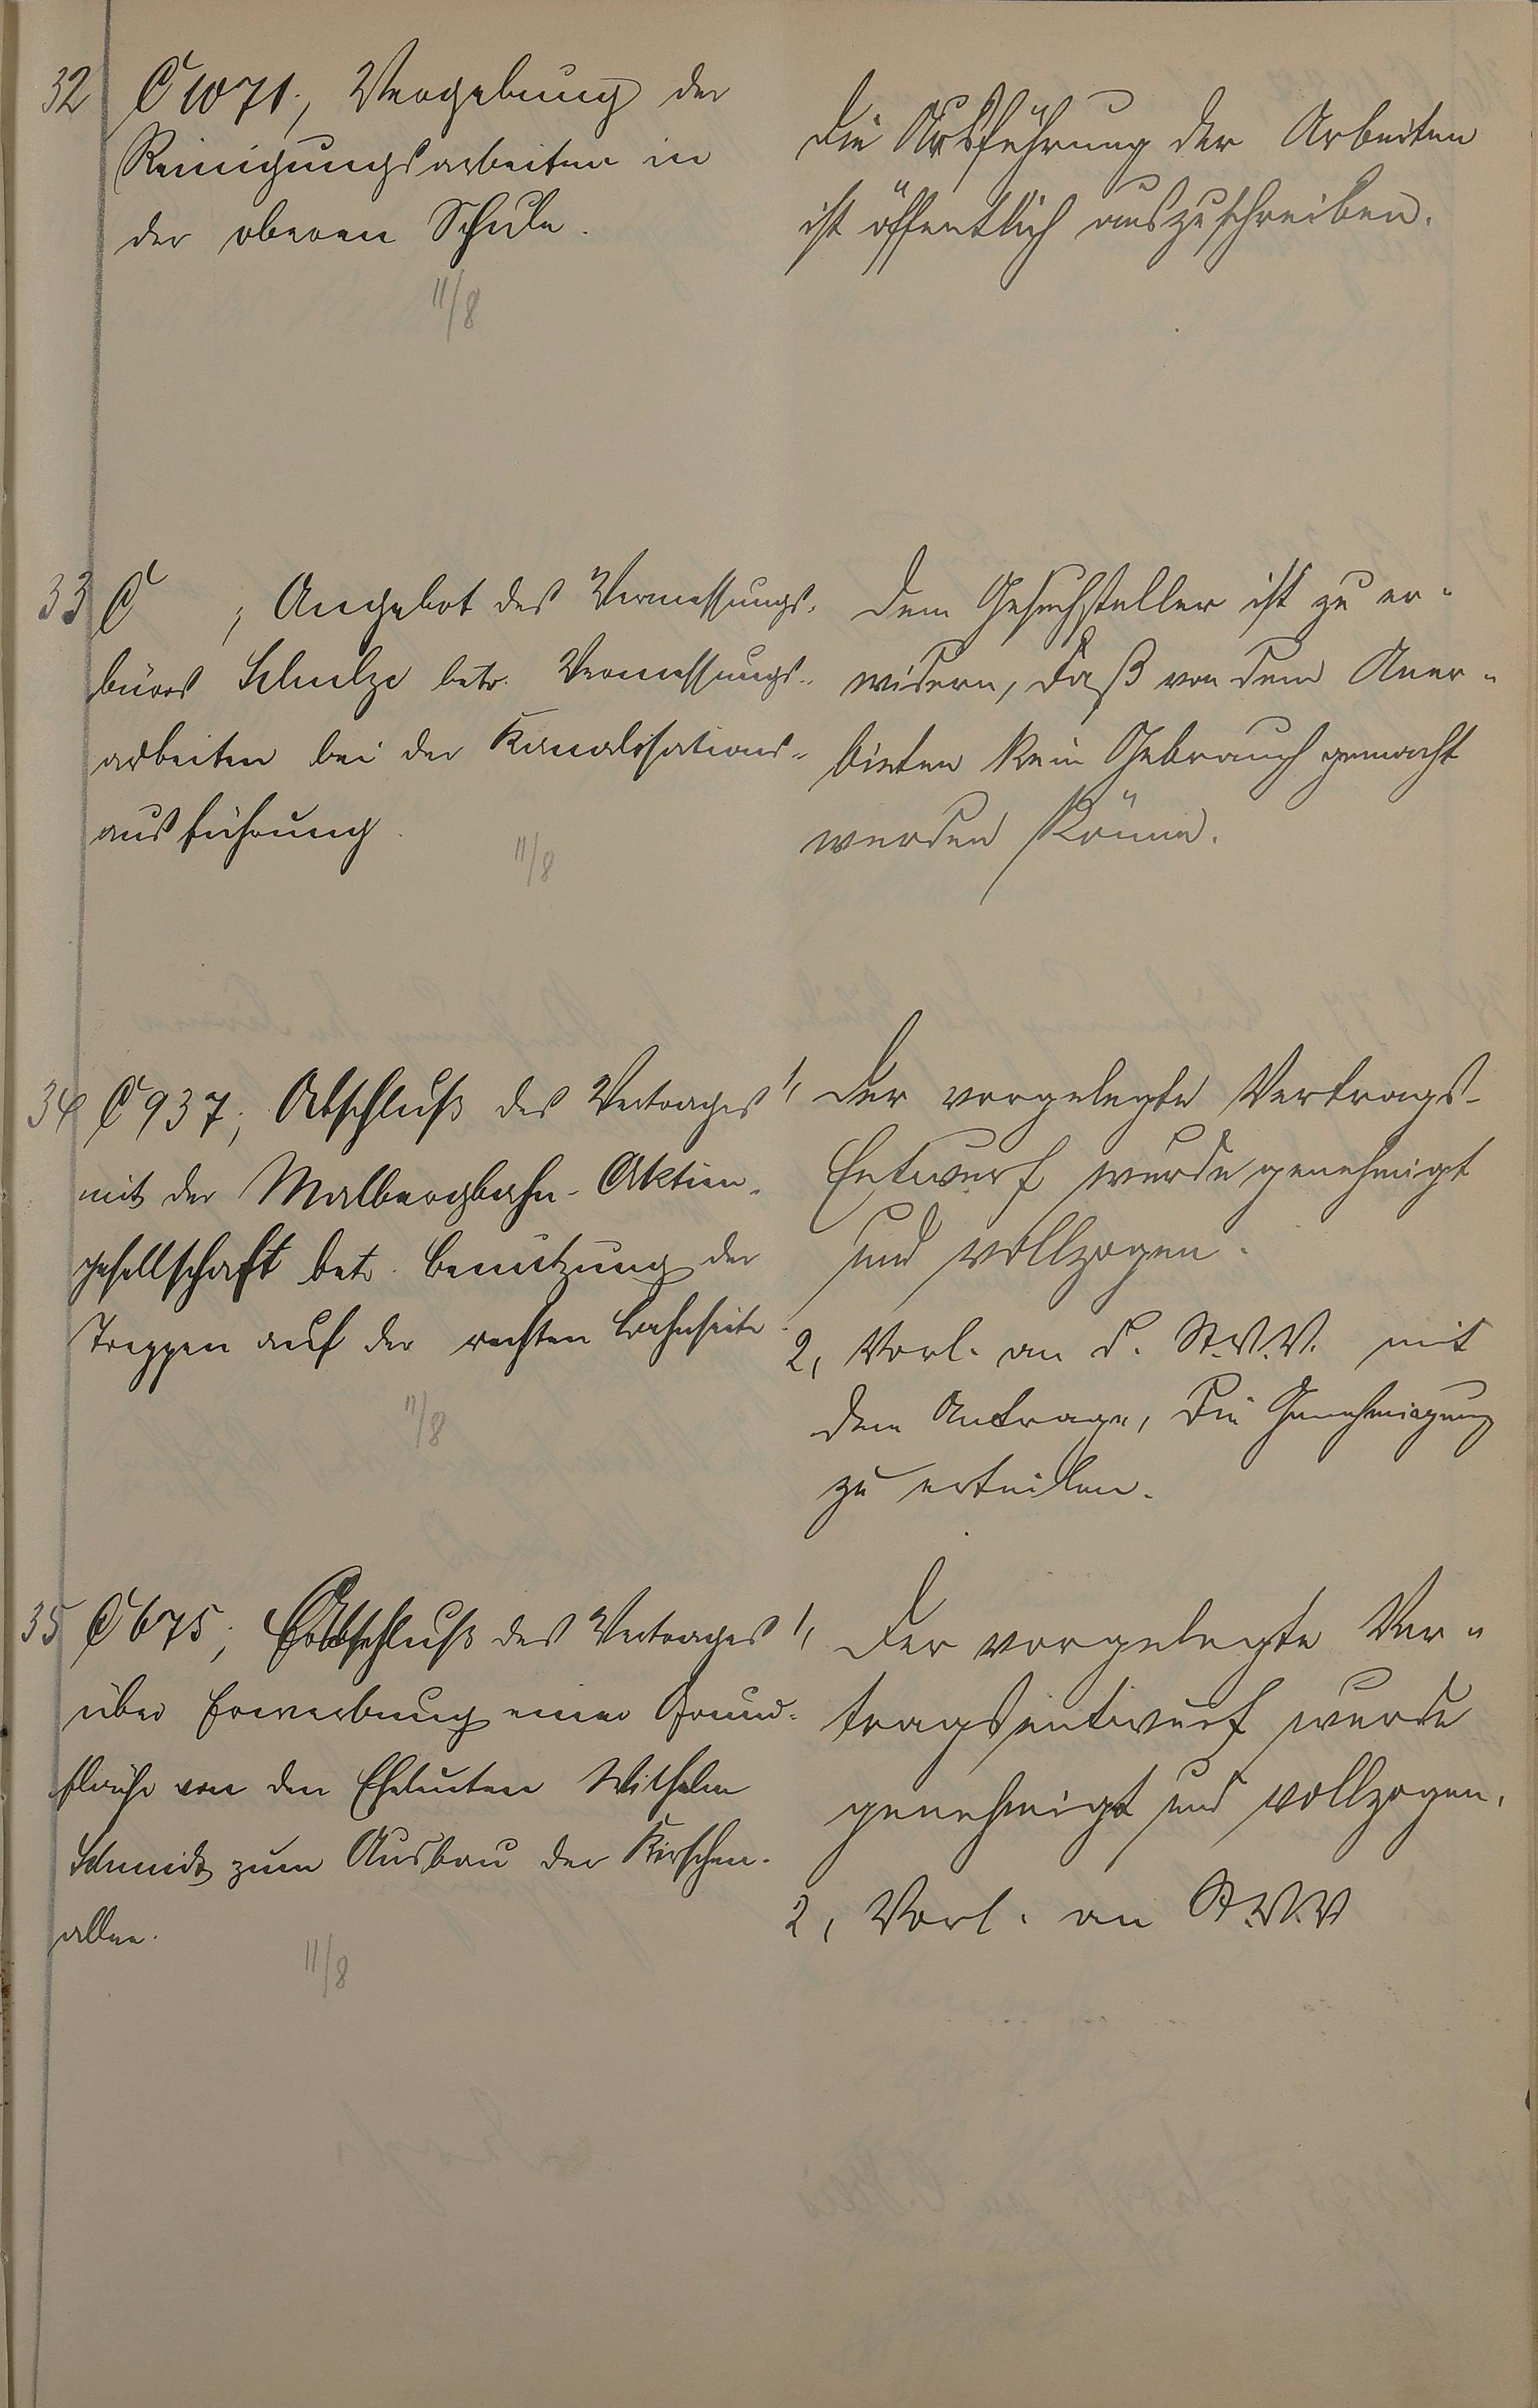 32 C 1071; Vergebung der
Reinigungsarbeiten in
der oberen Schule.
11/8
Die Ausführung der Arbeiten
ist öffentlich auszuschreiben.
33 C ; Angebot des Vermessungs-
büros Schulze betr. Vermessungs-
arbeiten bei der Kanalisations-
ausführung.
11/8
Dem Gesuchsteller ist zu er-
widern, daß von dem Aner-
bieten kein Gebrauch gemacht
werden könne.
34 C 937; Abschluß des Vertrages
mit der Malbergbahn-Aktien-
gesellschaft betr. Benutzung der
Treppen auf der rechten Bahnseite.
11/8
1, Der vorgelegte Vertrags-
Entwurf wurde genehmigt
und vollzogen.
2, Vorl. an d. St.V.V. mit
dem Antrage, die Genehmigung
zu erteilen.
35 C 675; Abschluß des Vertrages
über Erwerbung einer Grund-
fläche von den Eheleuten Wilhelm
Schmidt zum Ausbau der Kirschen-
allee.
11/8
1, Der vorgelegte Ver-
tragsentwurf wurde
genehmigt und vollzogen.
2, Vorl. an St.V.V